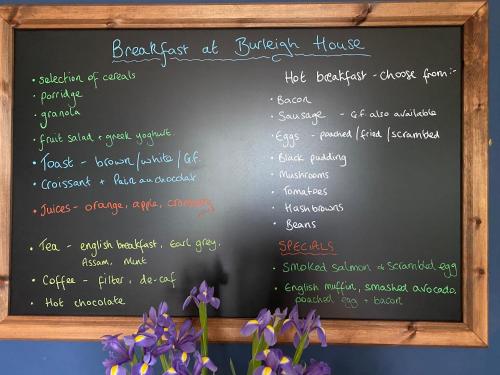 Breakfast at Burleigh House
• selection of cereals
• porridge
• granola
• fruit salad + greek yoghurt
• Toast - brown/white/G.f.
• Croissant + Pain au chocolat
• Juices - orange, apple, cranberry
• Tea - english breakfast, Earl grey.
Assam, Mint
• Coffee - filter, de-caf
• Hot chocolate
Hot breakfast - choose from:-
• Bacon
• Sausage - G.f. also available
• Eggs - poached/fried/scrambled
• Black pudding
• Mushrooms
• Tomatoes
• Hashbrowns
• Beans
SPECIALS
• Smoked salmon & scrambled egg
• English muffin, smashed avocado,
poached egg + bacon